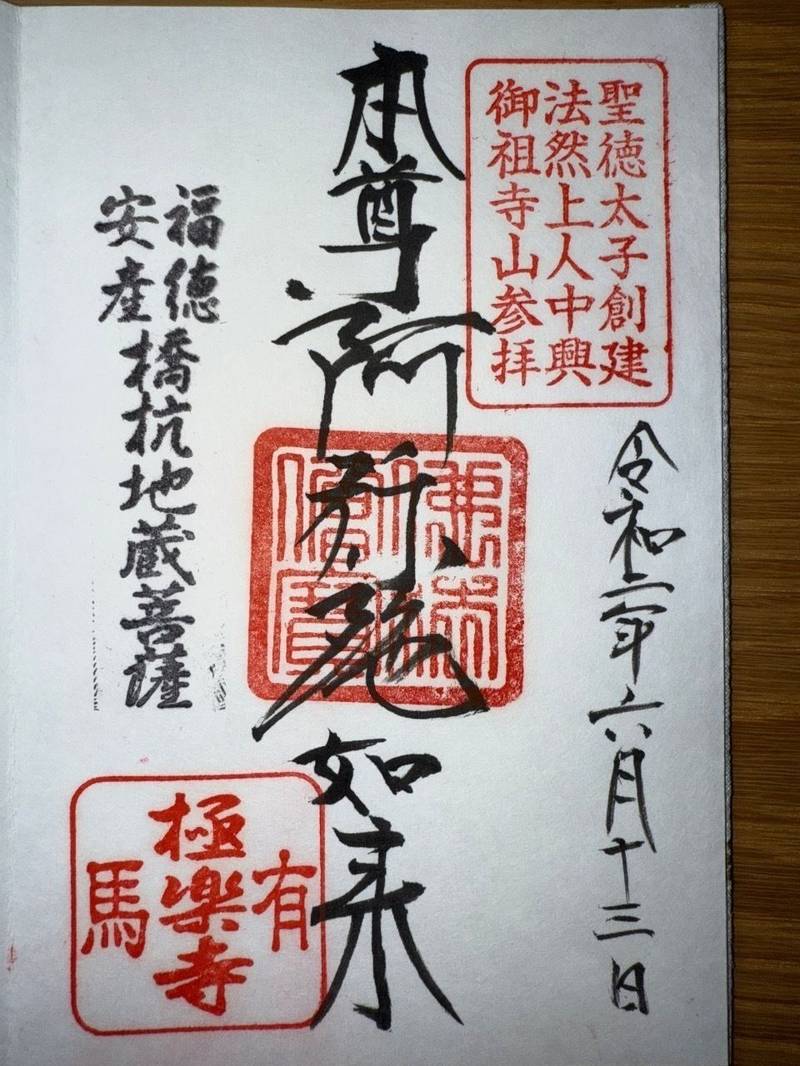 聖徳太子創建
法然上人中興
御祖寺山参拝
令和二年六月十三日
本尊阿弥陀如来
福徳
安産
橋杭地蔵菩薩
有馬
極楽寺